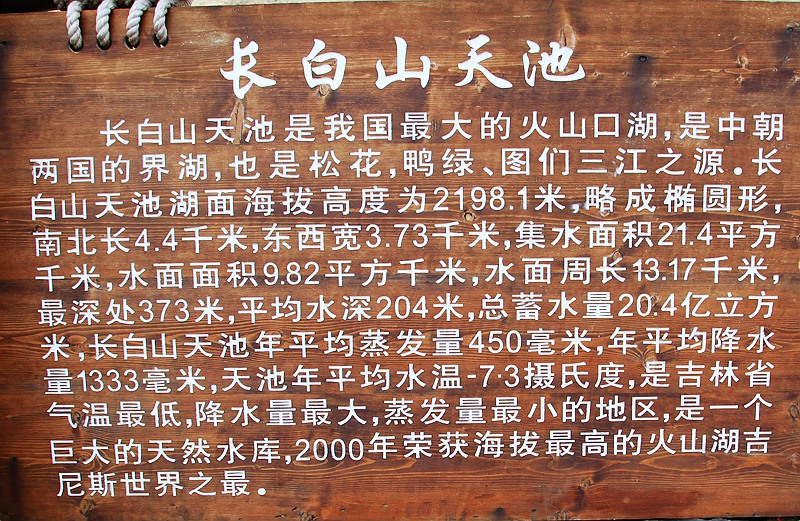 长白山天池
长白山天池是我国最大的火山口湖,是中朝
两国的界湖,也是松花,鸭绿、图们三江之源.长
白山天池湖面海拔高度为2198.1米,略成椭圆形,
南北长4.4千米,东西宽3.73千米,集水面积21.4平方
千米,水面面积9.82平方千米,水面周长13.17千米,
最深处373米,平均水深204米,总蓄水量20.4亿立方
米,长白山天池年平均蒸发量450毫米,年平均降水
量1333毫米,天池年平均水温-7·3摄氏度,是吉林省
气温最低,降水量最大,蒸发量最小的地区,是一个
巨大的天然水库,2000年荣获海拔最高的火山湖吉
尼斯世界之最.